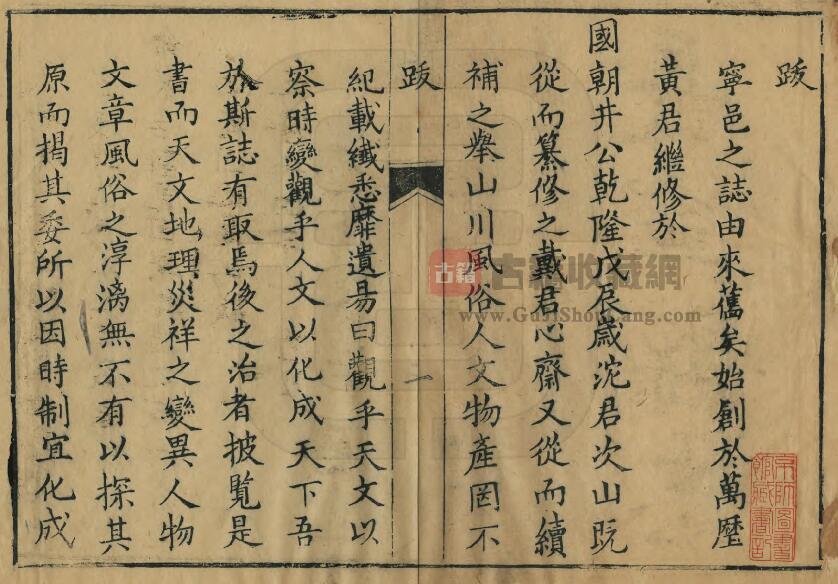 跋
寧邑之誌由來舊矣始創於萬歷
黃君繼修於
國朝井公乾隆戊辰歲沈君次山既
從而纂修之戴君心齋又從而續
補之舉山川風俗人文物產罔不
跋
一
紀載纖悉靡遺易曰觀乎天文以
察時變觀乎人文以化成天下吾
於斯誌有取焉後之治者披覧是
書而天文地理災祥之變異人物
文章風俗之淳漓無不有以探其
原而揭其委所以因時制宜化成
古籍
古籍收藏網
www.GujiShouCang.com